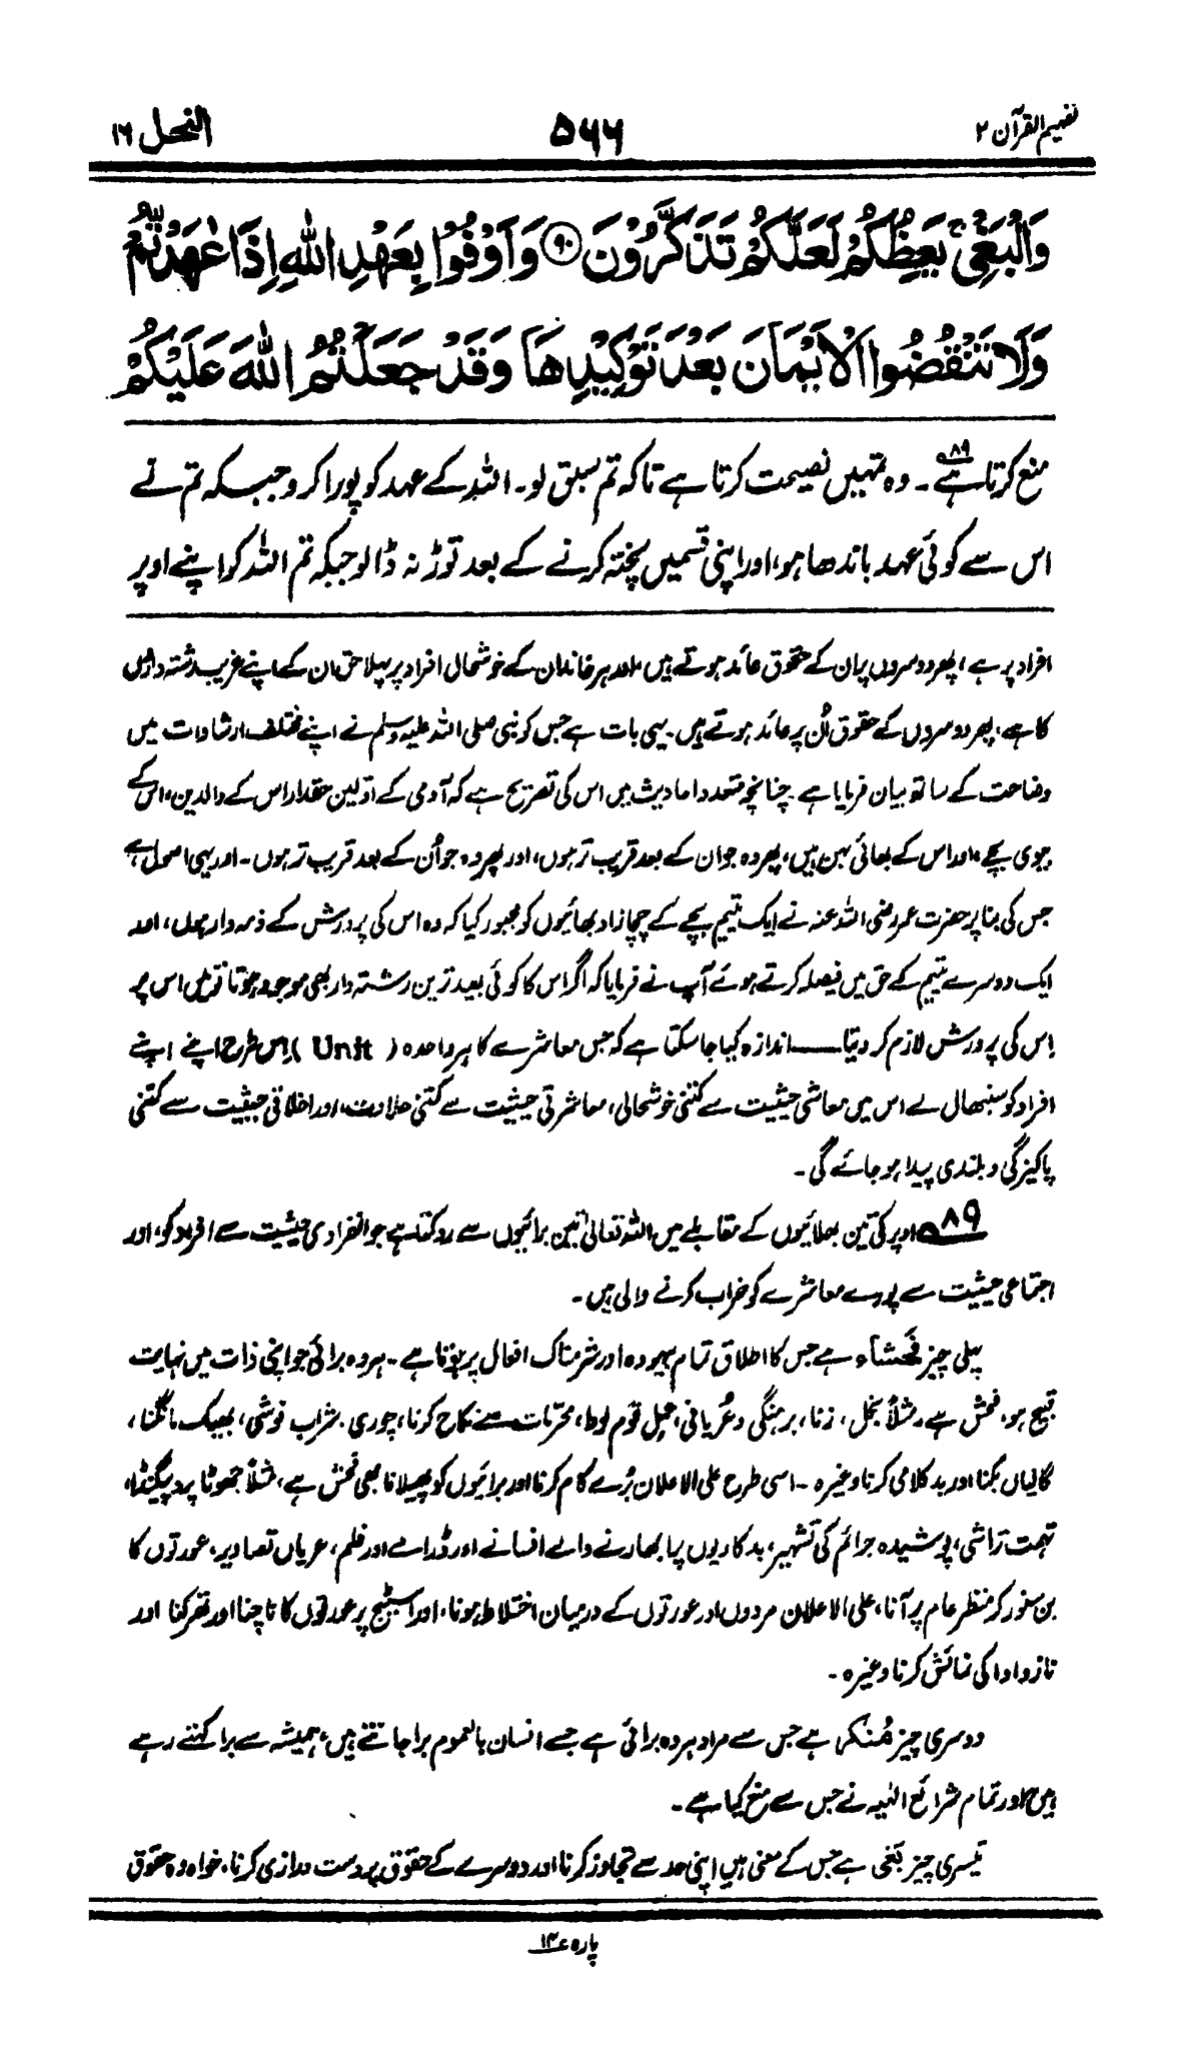 تفہیم القرآن ۲
۵۶۶
النحل ۱۶
وَالْبَغْیِ ۚ یَعِظُکُمْ لَعَلَّکُمْ تَذَکَّرُوْنَ ﴿۹۰﴾ وَاَوْفُوْا بِعَهْدِ اللّٰهِ اِذَا عٰهَدْتُّمْ
وَلَا تَنْقُضُوا الْاَیْمَانَ بَعْدَ تَوْکِیْدِهَا وَقَدْ جَعَلْتُمُ اللّٰهَ عَلَیْکُمْ
منع کرتا ہے۸۹۔ وہ تمہیں نصیحت کرتا ہے تاکہ تم سبق لو۔ اللہ کے عہد کو پورا کرو جبکہ تم نے
اس سے کوئی عہد باندھا ہو، اور اپنی قسمیں پختہ کرنے کے بعد توڑ نہ ڈالو جبکہ تم اللہ کو اپنے اوپر
افراد پر ہے، پھر دوسروں پر ان کے حقوق عائد ہوتے ہیں، اور ہر خاندان کے خوشحال افراد پر پہلا حق ان کے اپنے غریب رشتہ داروں
کا ہے، پھر دوسروں کے حقوق اُن پر عائد ہوتے ہیں۔ یہی بات ہے جس کو نبی صلی اللہ علیہ وسلم نے اپنے مختلف ارشادات میں
وضاحت کے ساتھ بیان فرمایا ہے۔ چنانچہ متعدد احادیث میں اس کی تصریح ہے کہ آدمی کے اوّلین حقدار اس کے والدین، اس کے
بیوی بچے، اور اس کے بھائی بہن ہیں، پھر وہ جو ان کے بعد قریب تر ہوں، اور پھر وہ جو اُن کے بعد قریب تر ہوں۔ اور یہی اصول ہے
جس کی بنا پر حضرت عمر رضی اللہ عنہ نے ایک یتیم بچے کے چچازاد بھائیوں کو مجبور کیا کہ وہ اس کی پرورش کے ذمہ دار ہوں، اور
ایک دوسرے یتیم کے حق میں فیصلہ کرتے ہوئے آپ نے فرمایا کہ اگر اس کا کوئی بعید ترین رشتہ دار بھی موجود ہوتا تو میں اس پر
اِس کی پرورش لازم کر دیتا ـــــ اندازہ کیا جا سکتا ہے کہ جس معاشرے کا ہر واحدہ (Unit) اِس طرح اپنے اپنے
افراد کو سنبھال لے اس میں معاشی حیثیت سے کتنی خوشحالی، معاشرتی حیثیت سے کتنی حلاوت، اور اخلاقی حیثیت سے کتنی
پاکیزگی و بلندی پیدا ہو جائے گی۔
۸۹ اوپر کی تین بھلائیوں کے مقابلے میں اللہ تعالیٰ تین برائیوں سے روکتا ہے جو انفرادی حیثیت سے افراد کو، اور
اجتماعی حیثیت سے پورے معاشرے کو خراب کرنے والی ہیں۔
پہلی چیز فَحشَاء ہے جس کا اطلاق تمام بیہودہ اور شرمناک افعال پر ہوتا ہے۔ ہر وہ برائی جو اپنی ذات میں نہایت
قبیح ہو، فحش ہے۔ مثلاً بخل، زنا، برہنگی و عُریانی، عملِ قوم لوط، محرّمات سے نکاح کرنا، چوری، شراب نوشی، بھیک مانگنا،
گالیاں بکنا اور بدکلامی کرنا وغیرہ۔ اسی طرح علی الاعلان بُرے کام کرنا اور برائیوں کو پھیلانا بھی فحش ہے، مثلاً جھوٹا پروپیگنڈا،
تہمت تراشی، پوشیدہ جرائم کی تشہیر، بدکاریوں پر ابھارنے والے افسانے اور ڈرامے اور فلم، عریاں تصاویر، عورتوں کا
بن سنور کر منظر عام پر آنا، علی الاعلان مردوں اور عورتوں کے درمیان اختلاط ہونا، اور اسٹیج پر عورتوں کا ناچنا اور تھرکنا اور
ناز و ادا کی نمائش کرنا وغیرہ۔
دوسری چیز مُنکَر ہے جس سے مراد ہر وہ برائی ہے جسے انسان بالعموم برا جانتے ہیں، ہمیشہ سے برا کہتے رہے
ہیں، اور تمام شرائع الٰہیہ نے جس سے منع کیا ہے۔
تیسری چیز بَغْی ہے جس کے معنی ہیں اپنی حد سے تجاوز کرنا اور دوسرے کے حقوق پر دست درازی کرنا، خواہ وہ حقوق
پارہ ۱۴